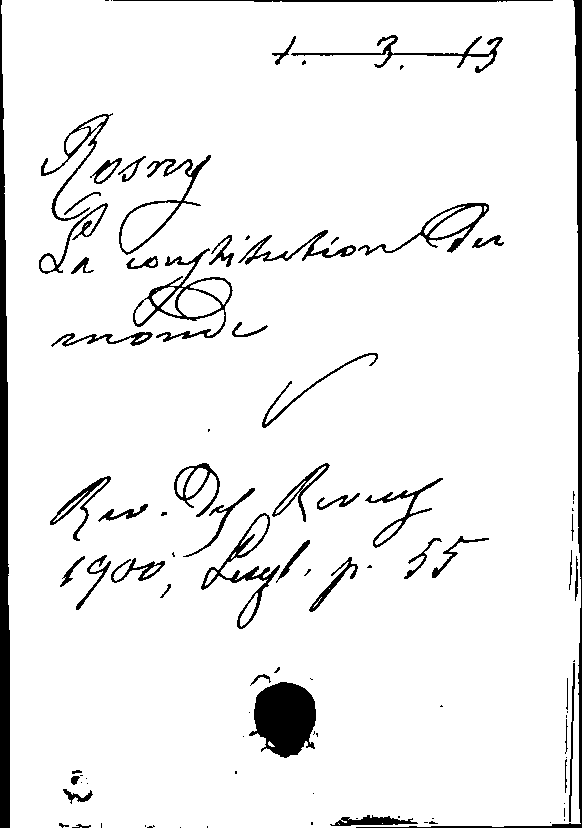 1. 3. 13
Rosny
La constitution du
monde
Rev. des Revues
1900, p. 55